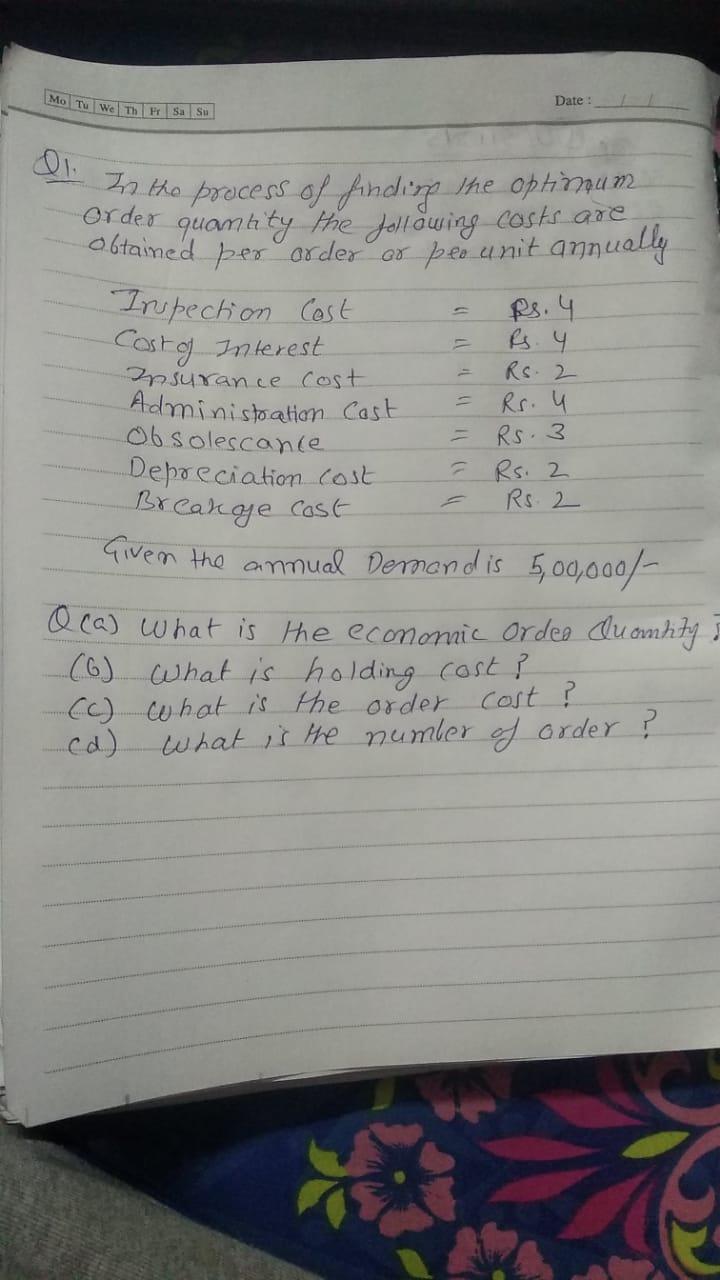 Mo Tu We Th Fr Sa Su
Date : / /
Q1. In the process of finding the optimum
order quantity the following costs are
obtained per order or per unit annually
Inspection Cost = Rs. 4
Cost of Interest = Rs. 4
Insurance Cost = Rs. 2
Administration Cost = Rs. 4
Obsolescance = Rs. 3
Depreciation Cost = Rs. 2
Breakage Cost = Rs. 2
Given the annual Demand is 5,00,000/-
Q (a) What is the economic order Quantity ?
(b) What is holding cost ?
(c) What is the order cost ?
(d) What is the number of order ?